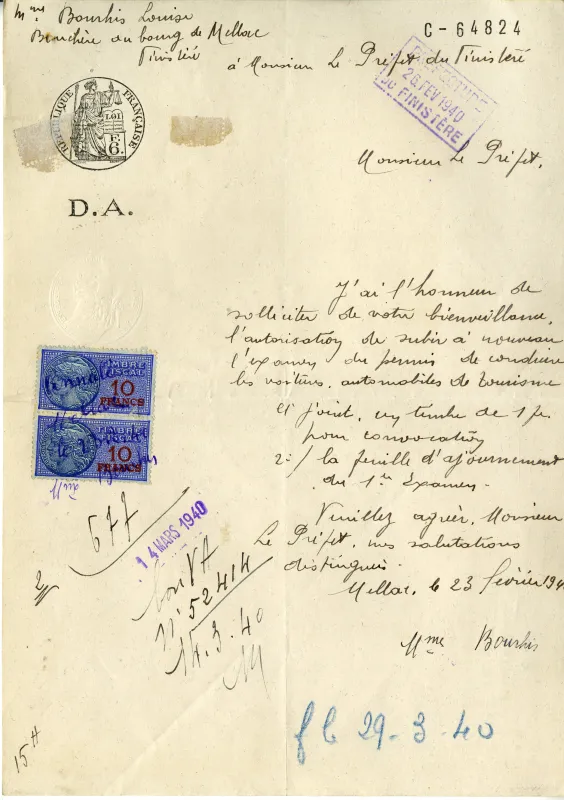 Mme Bourhis Louise
Bouchère au bourg de Mellac
Finistère
C-64824
à Monsieur Le Préfet du Finistère
26 FEV 1940
DU FINISTÈRE
RÉPUBLIQUE FRANÇAISE
LOI
6.
D.A.
Monsieur Le Préfet,
J'ai l'honneur de
solliciter de votre bienveillance,
l'autorisation de subir à nouveau
l'examen du permis de conduire
les voitures, automobiles de tourisme
Ci joint, un timbre de 1 fr
pour convocation
2-/ la feuille d'ajournement
du 1er Examen.
Veuillez agréer, Monsieur
Le Préfet, mes salutations
distinguées.
Mellac, le 23 février 194
Mme Bourhis
TIMBRE
FISCAL
10
FRANCS
TIMBRE
FISCAL
10
FRANCS
677
14 MARS 1940
bon VA
n° 52414
14.3.40
f le 29-3-40
15 H